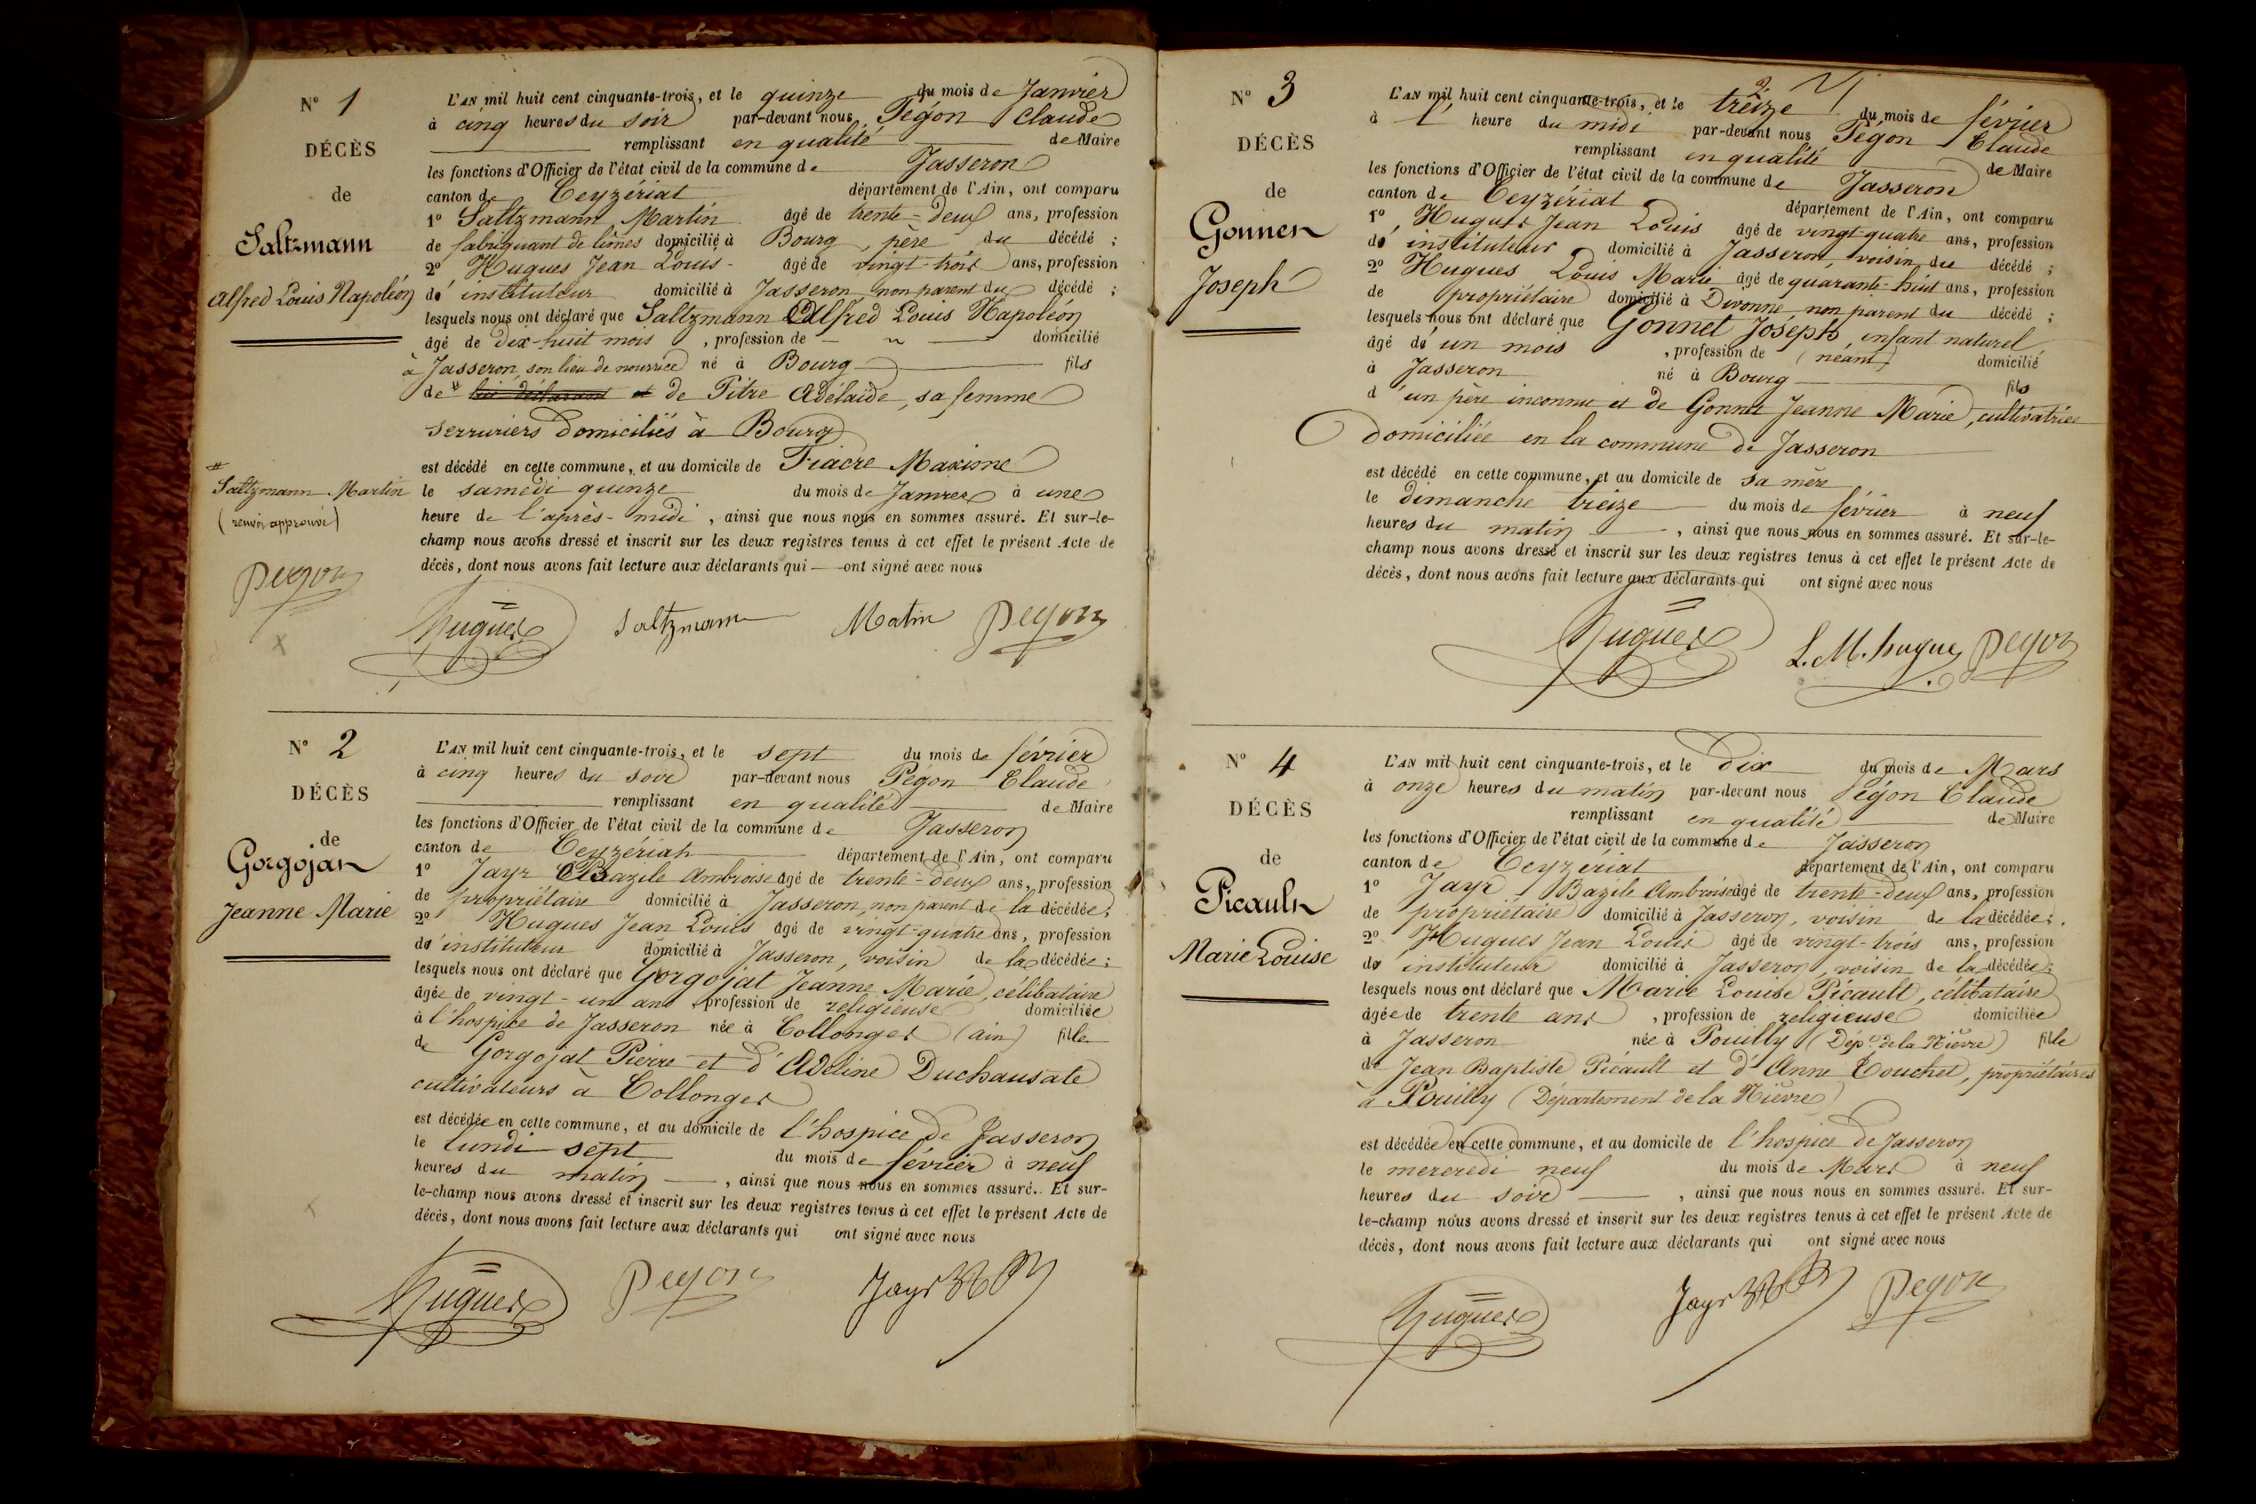 N° 1
DÉCÈS
de
Saltzmann
Alfred Louis Napoléon
L'AN mil huit cent cinquante-trois, et le quinze du mois de Janvier
à cinq heures du soir par-devant nous Pégon Claude
remplissant en qualité de Maire
les fonctions d'Officier de l'état civil de la commune de Jasseron
canton de Ceyzériat département de l'Ain, ont comparu
1° Saltzmann Martin âgé de trente-deux ans, profession
de fabriquant de limes domicilié à Bourg, père du décédé ;
2° Hugues Jean Louis âgé de vingt-trois ans, profession
d'instituteur domicilié à Jasseron non parent du décédé ;
lesquels nous ont déclaré que Saltzmann Alfred Louis Napoléon
âgé de dix-huit mois, profession de — domicilié
à Jasseron, son lieu de nourrice né à Bourg fils
de # de Pitre Adélaïde, sa femme
serruriers domiciliés à Bourg
est décédé en cette commune, et au domicile de Fiacre Maxime
le samedi quinze du mois de Janvier à une
heure de l'après-midi, ainsi que nous nous en sommes assuré. Et sur-le-
champ nous avons dressé et inscrit sur les deux registres tenus à cet effet le présent Acte de
décès, dont nous avons fait lecture aux déclarants qui — ont signé avec nous
# Saltzmann Martin
(renvoi approuvé)
Pegon
Hugues Saltzmann Matin Pegon
N° 2
DÉCÈS
de
Gorgojat
Jeanne Marie
L'AN mil huit cent cinquante-trois, et le sept du mois de février
à cinq heures du soir par-devant nous Pégon Claude
remplissant en qualité de Maire
les fonctions d'Officier de l'état civil de la commune de Jasseron
canton de Ceyzériat département de l'Ain, ont comparu
1° Jayr Bazile Ambroise âgé de trente-deux ans, profession
de propriétaire domicilié à Jasseron, non parent de la décédée ;
2° Hugues Jean Louis âgé de vingt-quatre ans, profession
d'instituteur domicilié à Jasseron, voisin de la décédée ;
lesquels nous ont déclaré que Gorgojat Jeanne Marie, célibataire
âgée de vingt-un ans, profession de religieuse domiciliée
à l'hospice de Jasseron née à Collonges (ain) fille
de Gorgojat Pierre et d'Adeline Duchausate
cultivateurs à Collonges
est décédée en cette commune, et au domicile de l'hospice de Jasseron
le lundi sept du mois de février à neuf
heures du matin —, ainsi que nous nous en sommes assuré. Et sur-
le-champ nous avons dressé et inscrit sur les deux registres tenus à cet effet le présent Acte de
décès, dont nous avons fait lecture aux déclarants qui ont signé avec nous
Hugues Pegon Jayr
N° 3
DÉCÈS
de
Gonnet
Joseph
L'AN mil huit cent cinquante-trois, et le treize du mois de février
à 1 heure du midi par-devant nous Pégon Claude
remplissant en qualité de Maire
les fonctions d'Officier de l'état civil de la commune de Jasseron
canton de Ceyzériat département de l'Ain, ont comparu
1° Hugues Jean Louis âgé de vingt-quatre ans, profession
d'instituteur domicilié à Jasseron, voisin du décédé ;
2° Hugues Louis Marie âgé de quarante-huit ans, profession
de propriétaire domicilié à Divonne non parent du décédé ;
lesquels nous ont déclaré que Gonnet Joseph, enfant naturel
âgé d'un mois, profession de (néant) domicilié
à Jasseron né à Bourg fils
d'un père inconnu et de Gonnet Jeanne Marie, cultivatrice
domiciliée en la commune de Jasseron
est décédé en cette commune, et au domicile de sa mère
le dimanche treize du mois de février à neuf
heures du matin —, ainsi que nous nous en sommes assuré. Et sur-le-
champ nous avons dressé et inscrit sur les deux registres tenus à cet effet le présent Acte de
décès, dont nous avons fait lecture aux déclarants qui ont signé avec nous
Hugues L. M. hugues Pegon
N° 4
DÉCÈS
de
Picault
Marie Louise
L'AN mil huit cent cinquante-trois, et le dix du mois de Mars
à onze heures du matin par-devant nous Pégon Claude
remplissant en qualité de Maire
les fonctions d'Officier de l'état civil de la commune de Jasseron
canton de Ceyzériat département de l'Ain, ont comparu
1° Jayr Bazile Ambroise âgé de trente-deux ans, profession
de propriétaire domicilié à Jasseron, voisin de la décédée ;
2° Hugues Jean Louis âgé de vingt-trois ans, profession
d'instituteur domicilié à Jasseron, voisin de la décédée ;
lesquels nous ont déclaré que Marie Louise Picault, célibataire
âgée de trente ans, profession de religieuse domiciliée
à Jasseron née à Pouilly (Dépt de la Nièvre) fille
de Jean Baptiste Picault et d'Anne Couchet, propriétaires
à Pouilly (Département de la Nièvre)
est décédée en cette commune, et au domicile de l'hospice de Jasseron
le mercredi neuf du mois de Mars à neuf
heures du soir —, ainsi que nous nous en sommes assuré. Et sur-
le-champ nous avons dressé et inscrit sur les deux registres tenus à cet effet le présent Acte de
décès, dont nous avons fait lecture aux déclarants qui ont signé avec nous
Hugues Jayr Pegon